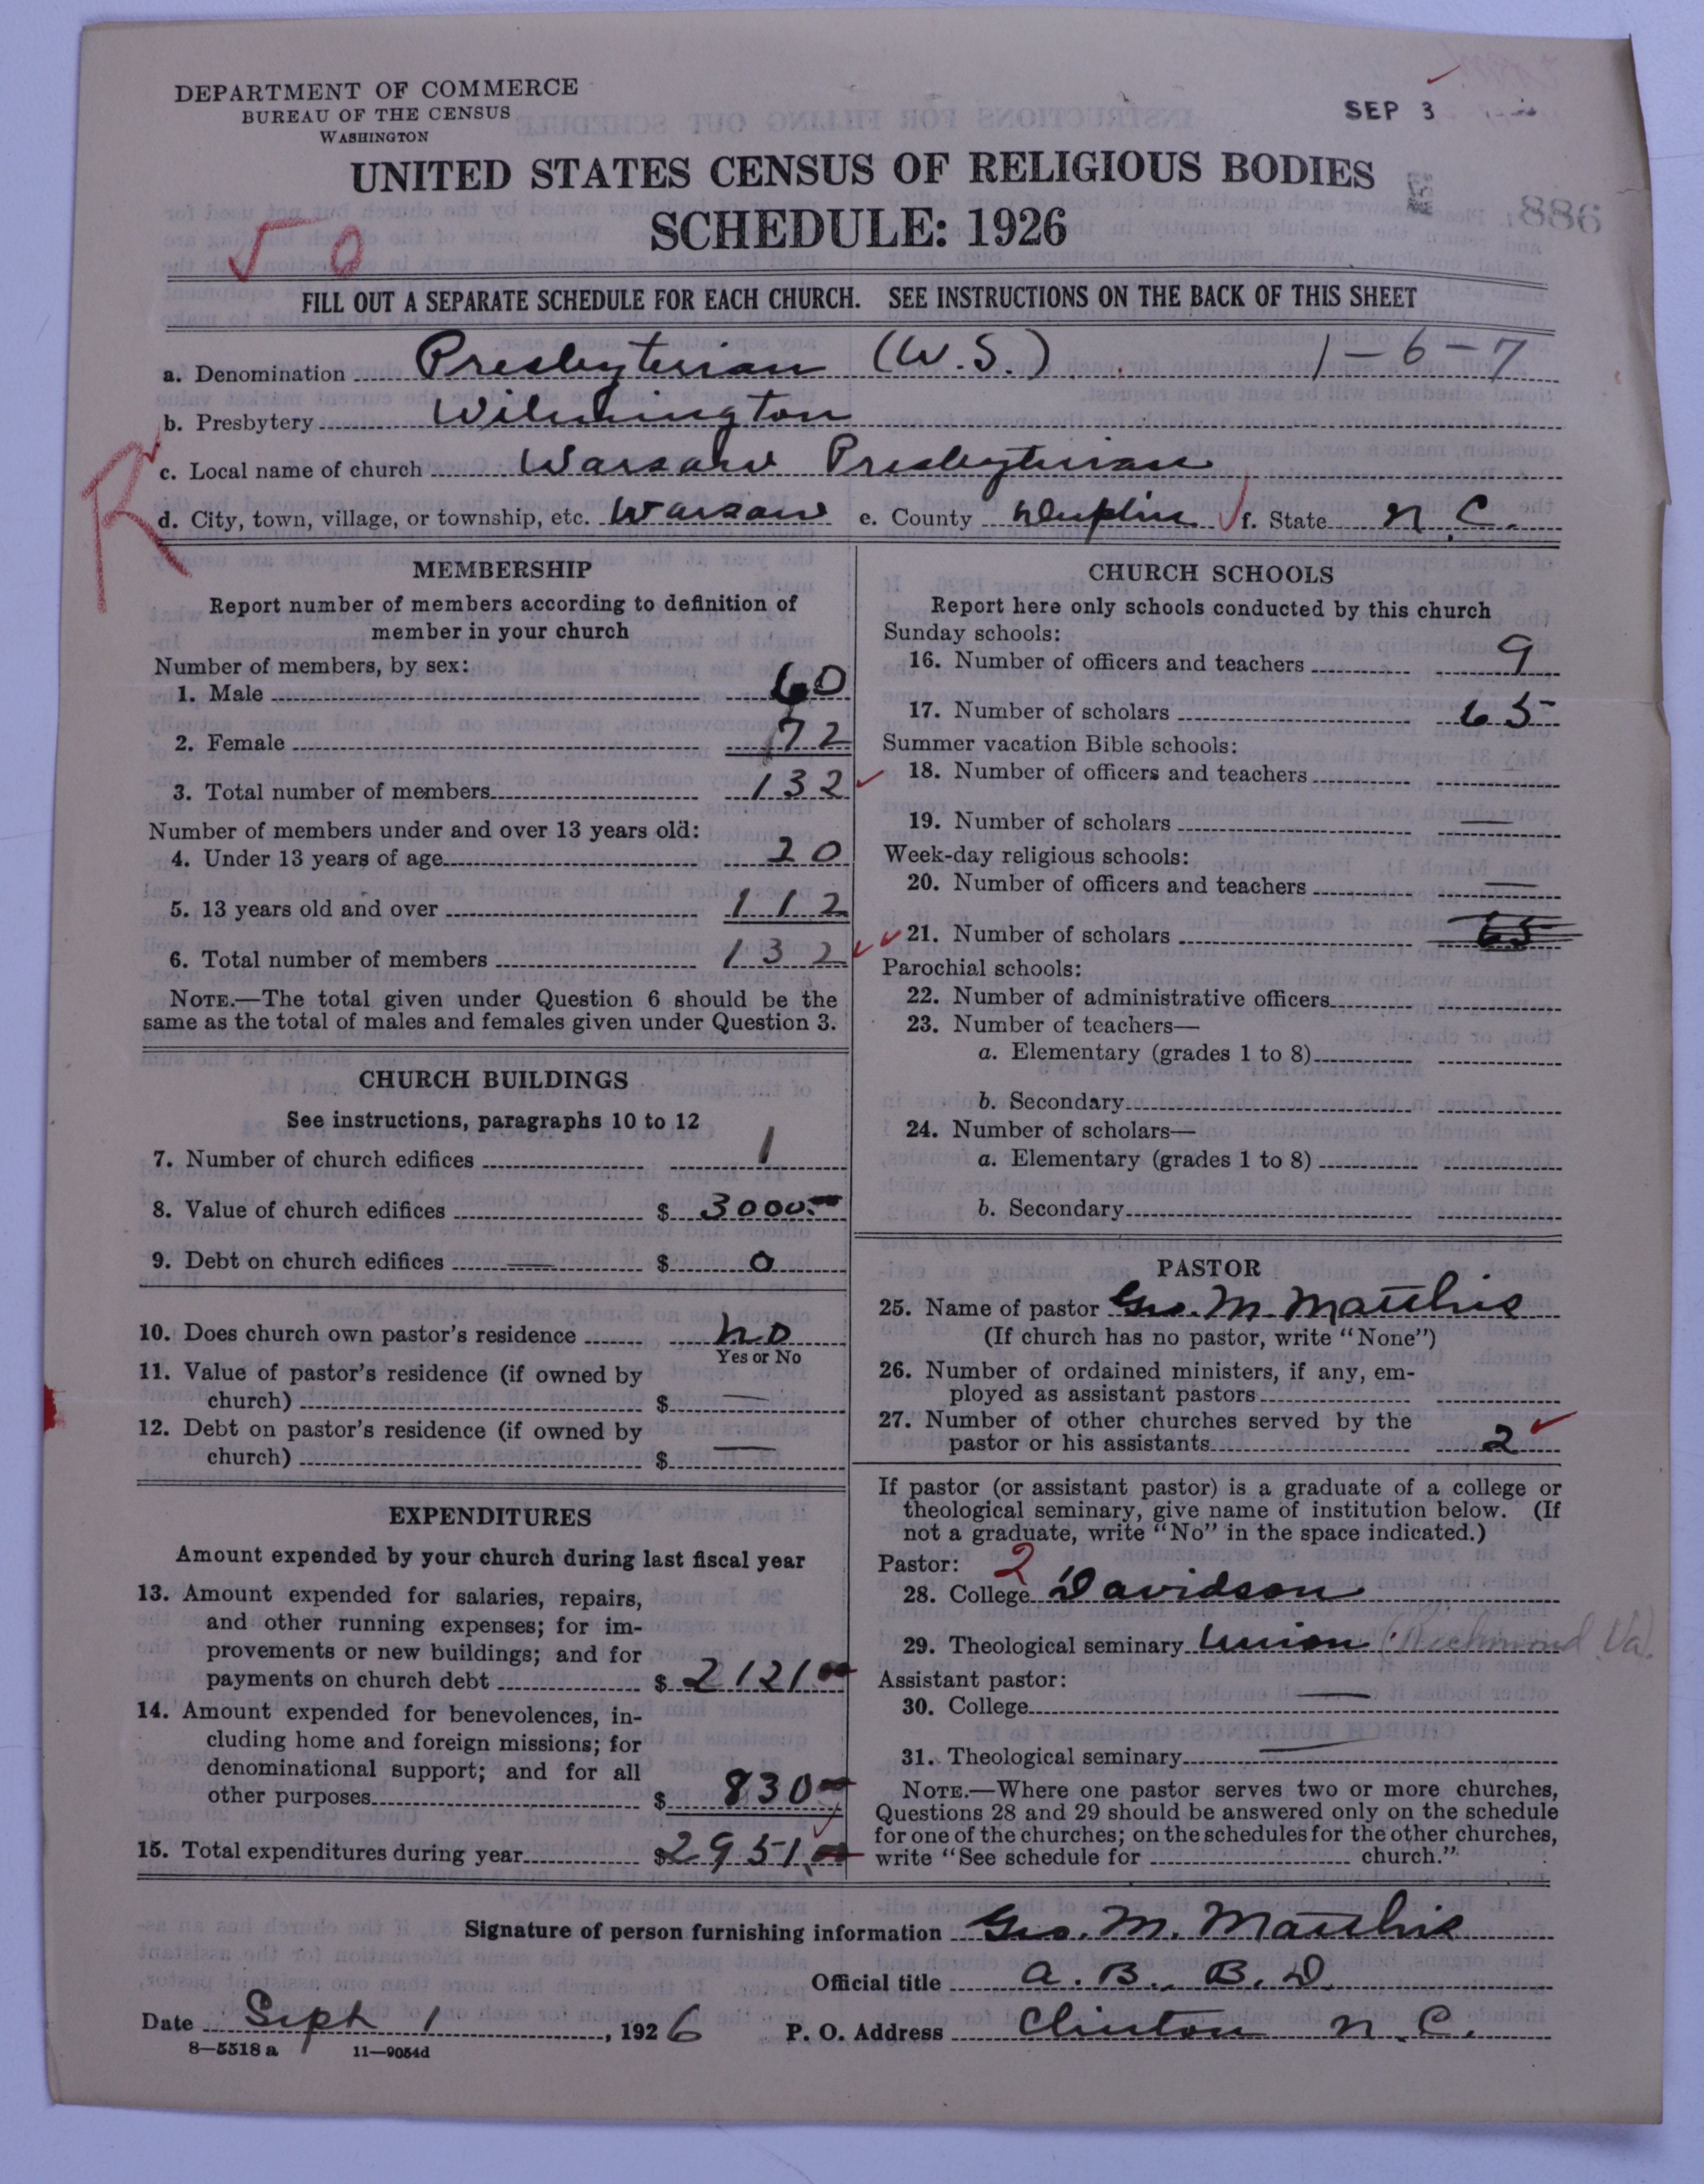 DEPARTMENT OF COMMERCE
BUREAU OF THE CENSUS
WASHINGTON
SEP 3
UNITED STATES CENSUS OF RELIGIOUS BODIES
SCHEDULE: 1926
886
50
FILL OUT A SEPARATE SCHEDULE FOR EACH CHURCH. SEE INSTRUCTIONS ON THE BACK OF THIS SHEET
a. Denomination Presbyterian (U.S.) 1-6-7
b. Presbytery Wilmington
c. Local name of church Warsaw Presbyterian
R
d. City, town, village, or township, etc. Warsaw e. County Duplin f. State N.C.
MEMBERSHIP
Report number of members according to definition of
member in your church
Number of members, by sex:
1. Male 60
2. Female 72
3. Total number of members 132
Number of members under and over 13 years old:
4. Under 13 years of age 20
5. 13 years old and over 112
6. Total number of members 132
NOTE.—The total given under Question 6 should be the
same as the total of males and females given under Question 3.
CHURCH BUILDINGS
See instructions, paragraphs 10 to 12
7. Number of church edifices 1
8. Value of church edifices $ 3000.00
9. Debt on church edifices — $ 0
10. Does church own pastor's residence no
Yes or No
11. Value of pastor's residence (if owned by
church) $ —
12. Debt on pastor's residence (if owned by
church) $ —
EXPENDITURES
Amount expended by your church during last fiscal year
13. Amount expended for salaries, repairs,
and other running expenses; for im-
provements or new buildings; and for
payments on church debt $ 2121.00
14. Amount expended for benevolences, in-
cluding home and foreign missions; for
denominational support; and for all
other purposes $ 830.00
15. Total expenditures during year $ 2951.00
CHURCH SCHOOLS
Report here only schools conducted by this church
Sunday schools:
16. Number of officers and teachers 9
17. Number of scholars 65
Summer vacation Bible schools:
18. Number of officers and teachers
19. Number of scholars —
Week-day religious schools:
20. Number of officers and teachers —
21. Number of scholars 65
Parochial schools:
22. Number of administrative officers
23. Number of teachers—
a. Elementary (grades 1 to 8)
b. Secondary
24. Number of scholars—
a. Elementary (grades 1 to 8)
b. Secondary
PASTOR
25. Name of pastor Geo. M. Matthis
(If church has no pastor, write "None")
26. Number of ordained ministers, if any, em-
ployed as assistant pastors
27. Number of other churches served by the
pastor or his assistants 2
If pastor (or assistant pastor) is a graduate of a college or
theological seminary, give name of institution below. (If
not a graduate, write "No" in the space indicated.)
Pastor: 2
28. College Davidson
29. Theological seminary Union (Richmond Va.)
Assistant pastor:
30. College —
31. Theological seminary —
NOTE.—Where one pastor serves two or more churches,
Questions 28 and 29 should be answered only on the schedule
for one of the churches; on the schedules for the other churches,
write "See schedule for church."
Signature of person furnishing information Geo. M. Matthis
Official title A.B., B.D.
Date Sept 1, 1926 P. O. Address Clinton N.C.
8—5518 a 11—9054d